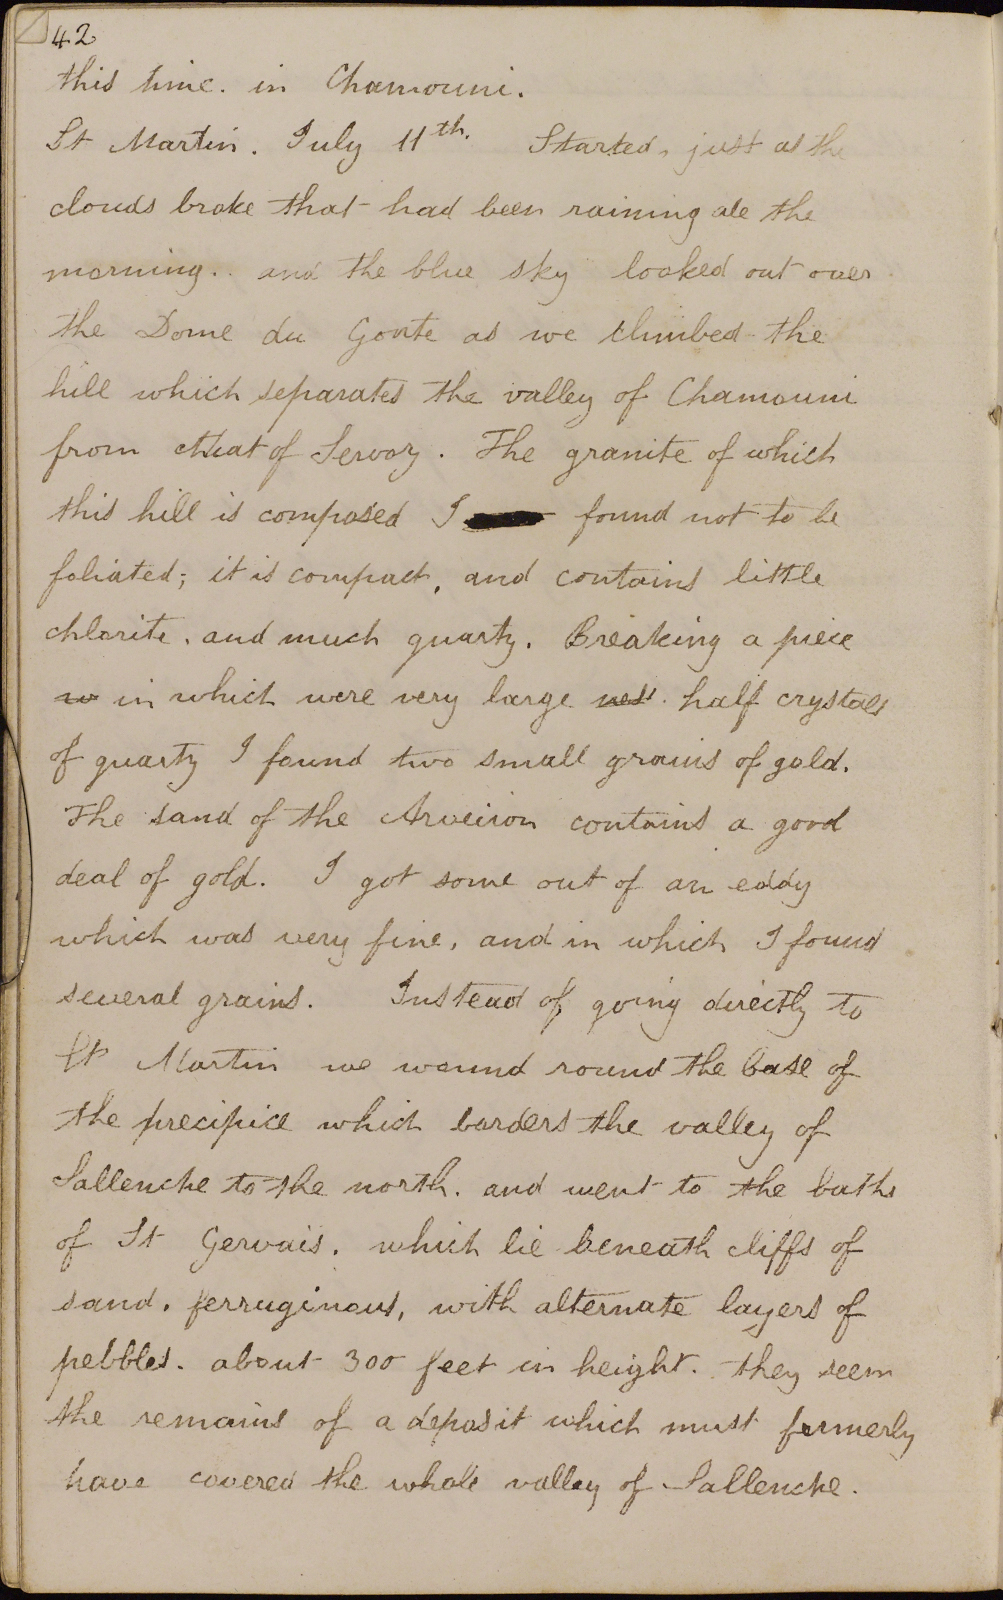 42
this time. in Chamouni.
St Martin. July 11th. Started, just as the
clouds broke that had been raining all the
morning.. and the blue sky looked out over
the Dome du Goute as we climbed the
hill which separates the valley of Chamouni
from that of Servoz. The granite of which
this hill is composed I found not to be
foliated; it is compact, and contains little
chlorite, and much quartz. Breaking a piece
w in which were very large ness. half crystals
of quartz I found two small grains of gold.
The sand of the Arveiron contains a good
deal of gold. I got some out of an eddy
which was very fine, and in which I found
several grains. Instead of going directly to
St Martin we wound round the base of
the precipice which borders the valley of
Sallenche to the north. and went to the baths
of St Gervais. which lie beneath cliffs of
sand. ferruginous, with alternate layers of
pebbles. about 300 feet in height. they seem
the remains of a deposit which must formerly
have covered the whole valley of Sallenche.